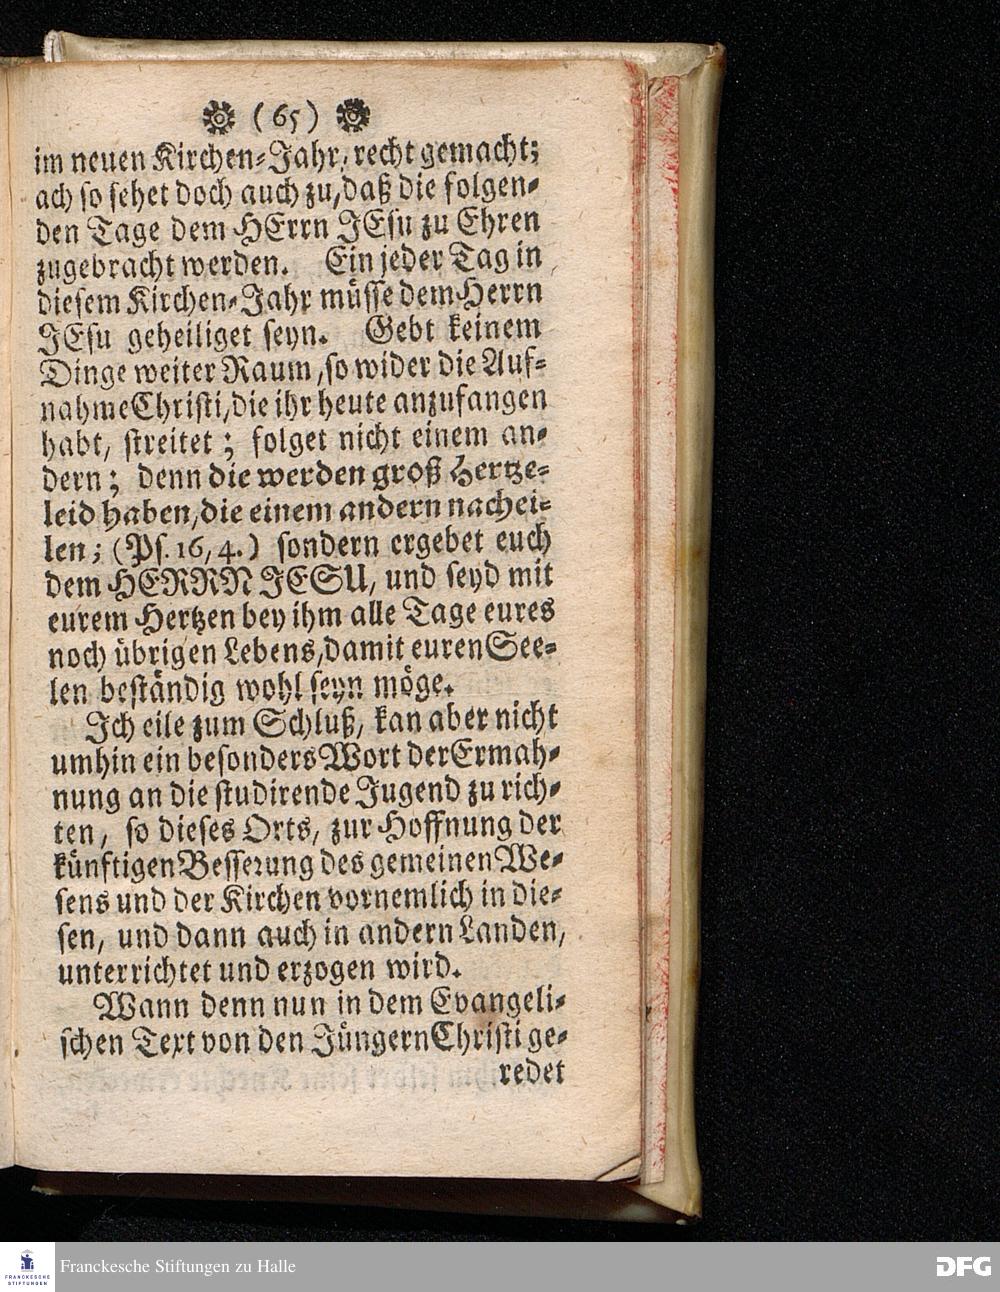 (65)
im neuen Kirchen-Jahr, recht gemacht;
ach so sehet doch auch zu, daß die folgen-
den Tage dem HErrn JEsu zu Ehren
zugebracht werden. Ein jeder Tag in
diesem Kirchen-Jahr müsse dem Herrn
JEsu geheiliget seyn. Gebt keinem
Dinge weiter Raum, so wider die Auf-
nahme Christi, die ihr heute anzufangen
habt, streitet; folget nicht einem an-
dern; denn die werden groß Hertze-
leid haben, die einem andern nachei-
len; (Ps. 16, 4.) sondern ergebet euch
dem HERRN JESU, und seyd mit
eurem Hertzen bey ihm alle Tage eures
noch übrigen Lebens, damit euren See-
len beständig wohl seyn möge.
Ich eile zum Schluß, kan aber nicht
umhin ein besonders Wort der Ermah-
nung an die studirende Jugend zu rich-
ten, so dieses Orts, zur Hoffnung der
künftigen Besserung des gemeinen We-
sens und der Kirchen vornemlich in die-
sen, und dann auch in andern Landen,
unterrichtet und erzogen wird.
Wann denn nun in dem Evangeli-
schen Text von den Jüngern Christi ge-
redet
FRANCKESCHE
STIFTUNGEN
Franckesche Stiftungen zu Halle
DFG